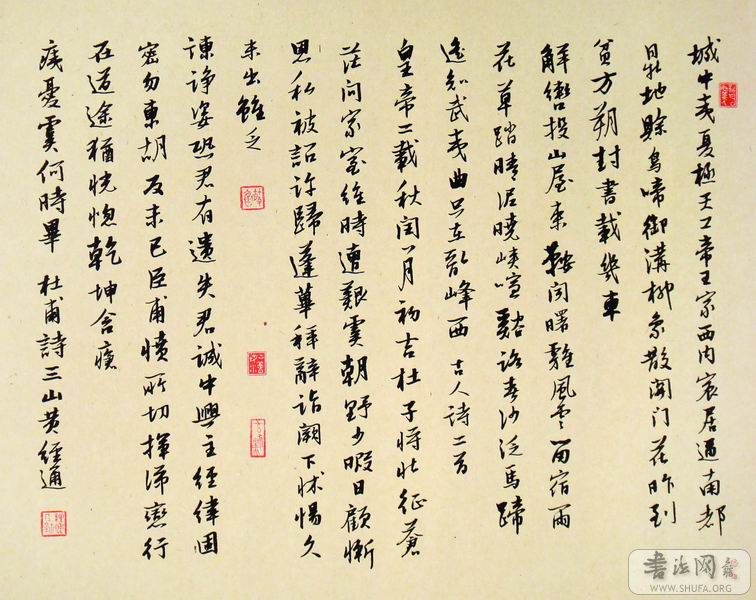 城中夷夏極王工帝王家西内宸居過南都
日地賒鳥啼御溝柳象散门花昨到
貧方朔封書載幾車
解轡投山屋束鞍闻曙雞風雲留宿雨
花草踏晴泥曉峽喧谿路春沙泛馬蹄
遙知武夷曲只在亂峰西 古人詩二首
皇帝二載秋闰八月初吉杜子將北征蒼
茫问家室維時遭艱虞朝野少暇日顧慚
恩私被詔许歸蓬蓽拜辭詣阙下怵惕久
未出雖乏
諫諍姿恐君有遺失君誠中興主經緯固
密勿東胡反未已臣甫憤所切揮涕戀行
在道途猶恍惚乾坤含瘡
痍憂虞何時畢 杜甫詩三山黄經通
書法网
WWW.SHUFA.ORG